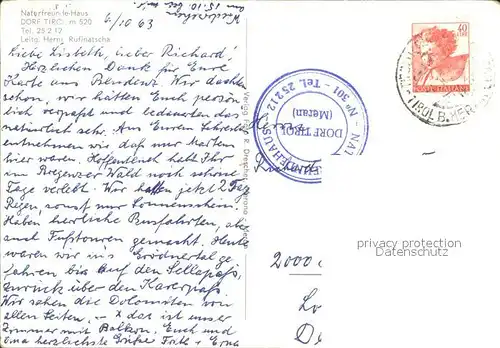 Naturfreunde-Haus
DORF TIROL m 520
Tel. 25 2 12
Leitg. Herm. Rufinatscha
6/10 63
am 15.10.
Liebe Lisbeth, lieber Richard!
Herzlichen Dank für Eure
Karte aus Bludenz. Wir dachten
schon, wir hätten Euch persön-
lich verpasst und bedauerten das
natürlich sehr. Aus Eurem Schreiben
entnehmen wie, daß nur Marten
hier waren. Hoffentlich habt Ihr
im Bregenzer Wald noch schöne
Tage verlebt. Wir hatten jetzt 2 Tage
Regen, sonst nur Sonnenschein.
Haben herrliche Busfahrten, aber
auch Fußtouren gemacht. Heute
waren wir ins Grödnertal ge-
fahren bis auf den Sellapaß,
zurück über den Karerpaß.
Wir sahen die Dolomiten von
allen Seiten. — x das ist unser
Zimmer mit Balkon. Euch und
Oma herzlichste Grüße Fath + Erna
Verlag Foto R. Drescher, Merano
N° 301 - Tel. 25 2 12
DORF TIROL
(Meran)
40
LIRE
POSTE ITALIANE
TIROL B. MERAN
2000
profinity SERVICE
Datenschutz